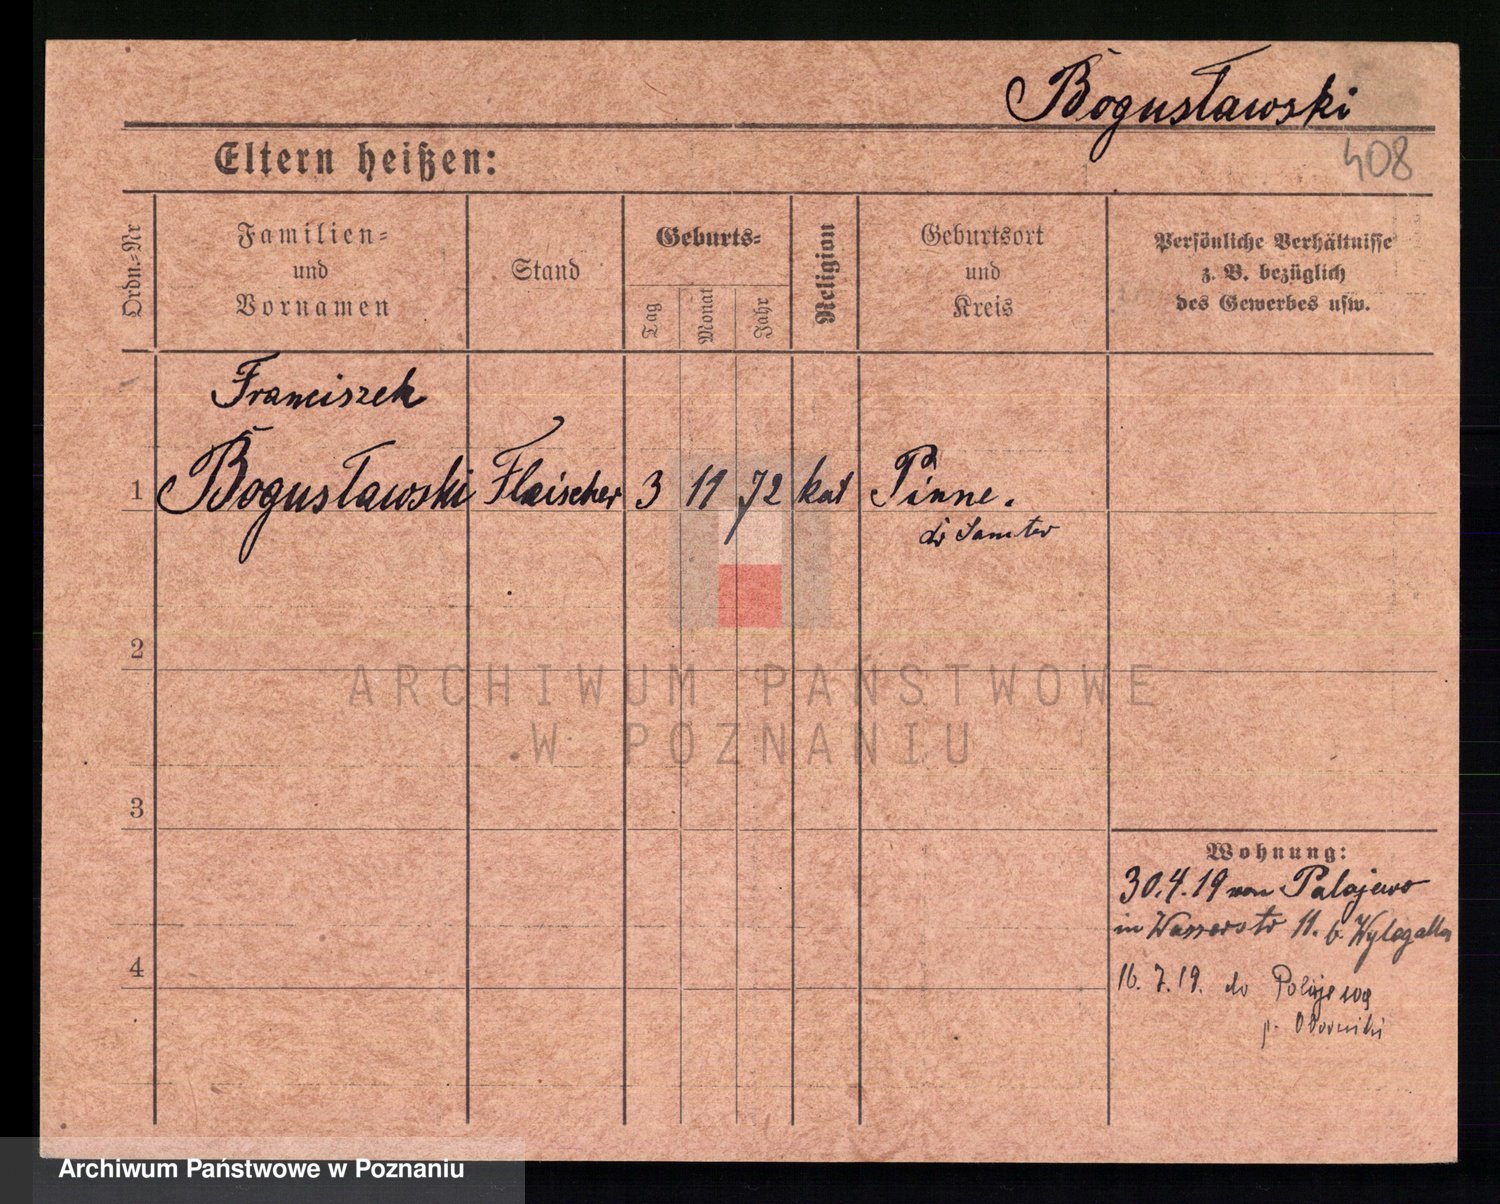 Bogusławski
408
Eltern heißen:
Ordn.-Nr
Familien-
und
Vornamen
Stand
Geburts-
Tag
Monat
Jahr
Religion
Geburtsort
und
Kreis
Persönliche Verhältnisse
z. B. bezüglich
des Gewerbes usw.
Franciszek
1 Bogusławski Fleischer 3 11 72 kat Pinne.
Samter
2
ARCHIWUM PAŃSTWOWE
W POZNANIU
3
Wohnung:
30.4.19 von Polajewo
in Wasserstr 11. b. Wylegalla
4
16.7.19. do Polajewa
p. Oborniki
Archiwum Państwowe w Poznaniu